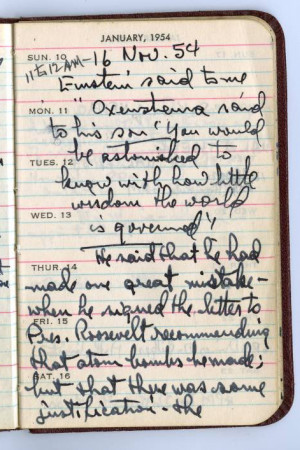 JANUARY, 1954
SUN. 10
11 to 12 AM - 16 Nov. 54
Einstein said to me
MON. 11 "Oxenstierna said
to his son "You would
TUES. 12 be astonished to
know with how little
wisdom the world
WED. 13 is governed"
He said that he had
THUR. 14
made one great mistake -
when he signed the letter to
FRI. 15
Pres. Roosevelt recommending
that atom bombs be made;
SAT. 16
but that there was some
justification - the